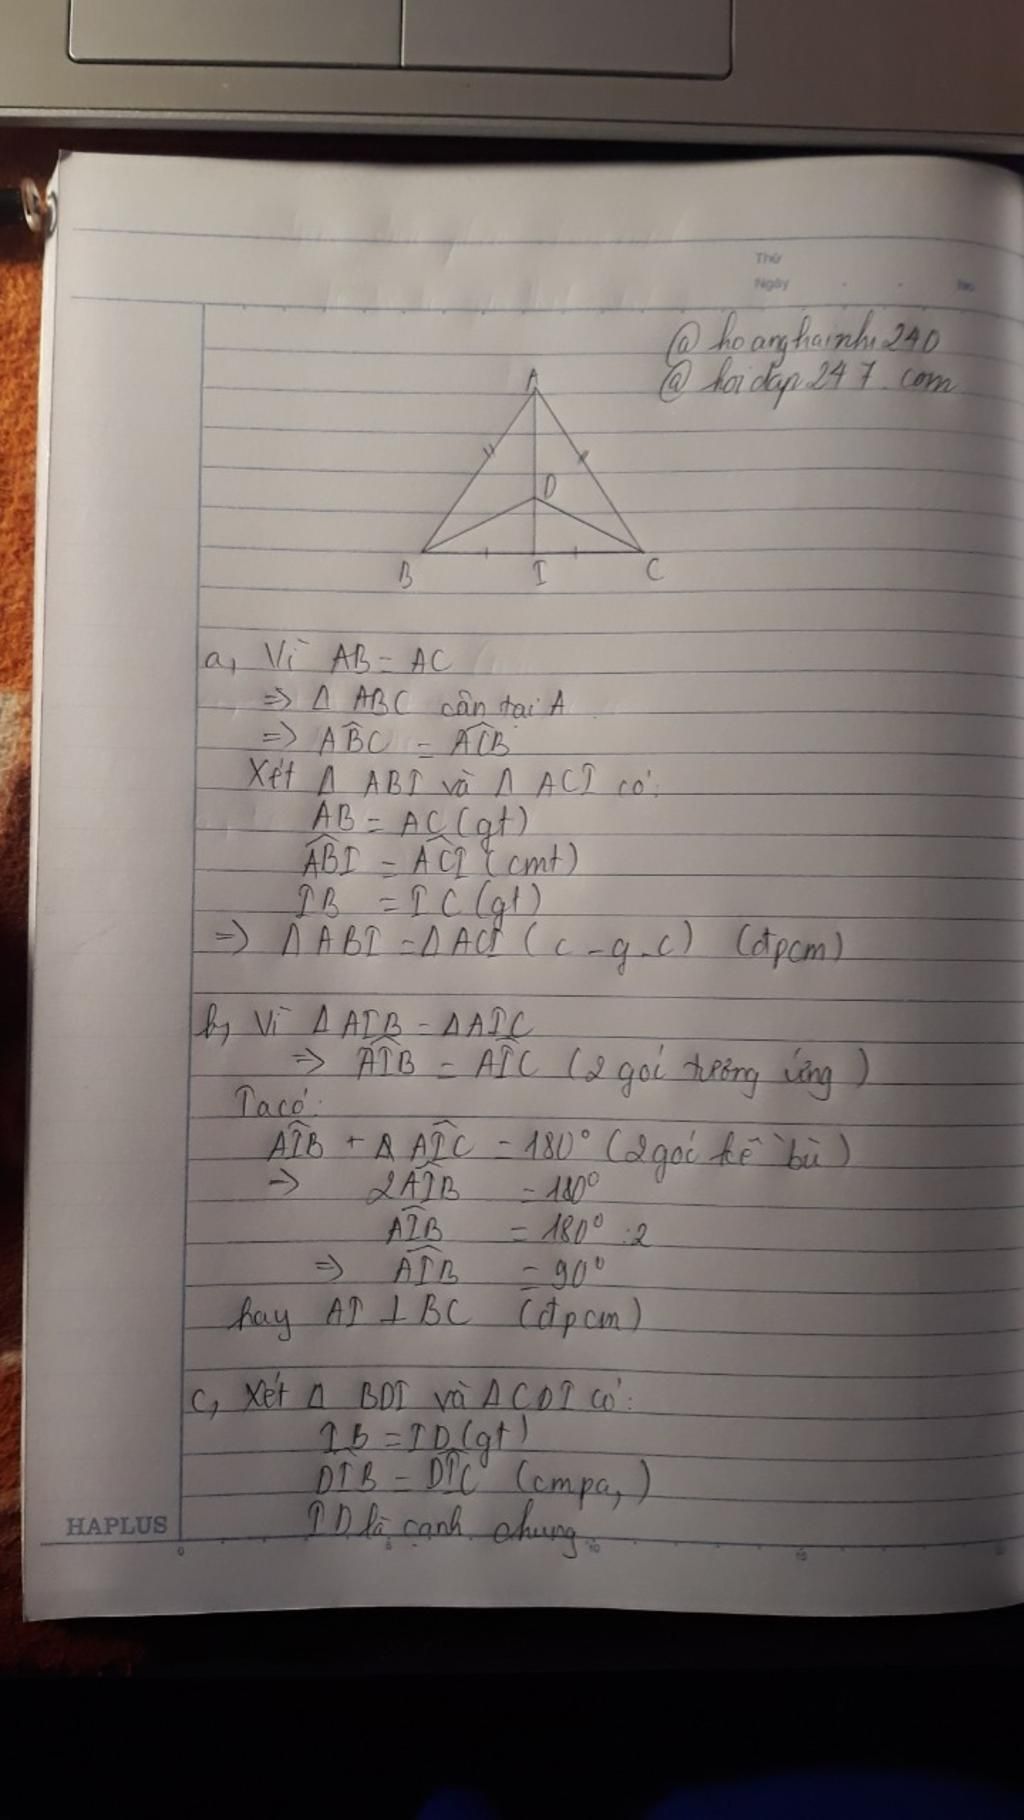 Thứ
Ngày
No
@ hoanghainhi240
@ hoidap247.com
A
D
B
I
C
a, Vì AB = AC
=> Δ ABC cân tại A
=> ABC^ = ACB^
Xét Δ ABI và Δ ACI có:
AB = AC (gt)
ABI^ = ACI^ (cmt)
IB = IC (gt)
=> Δ ABI = Δ ACI (c-g-c) (đpcm)
b, Vì Δ AIB = Δ AIC
=> AIB^ = AIC^ (2 góc tương ứng)
Ta có:
AIB^ + AIC^ = 180° (2 góc kề bù)
=> 2AIB^ = 180°
AIB^ = 180° : 2
=> AIB^ = 90°
hay AI ⊥ BC (đpcm)
c, Xét Δ BDI và Δ CDI có:
IB = ID (gt)
DIB^ = DIC^ (cmpa,)
ID là cạnh chung
HAPLUS
0 5 10 15